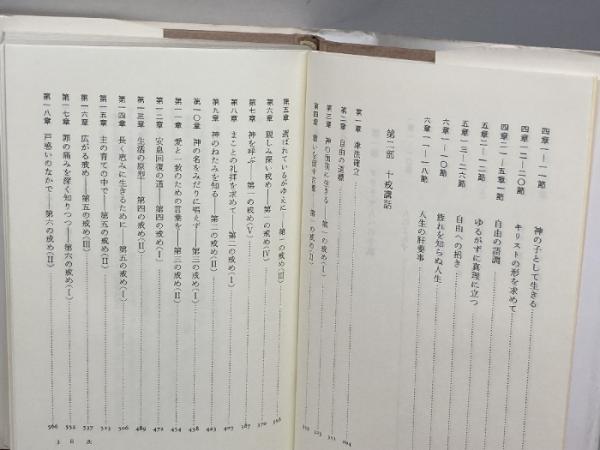 四章一—一一節 神の子として生きる
四章一二—二〇節 キリストの形を求めて
四章二一—五章一節 自由の語調
五章二—一二節 ゆるがずに真理に立つ
五章一三—二六節 自由への招き
六章一—一〇節 疲れを知らぬ人生
六章一一—一八節 人生の肝要事
第二部 十戒講話
第一章 律法確立
第二章 自由の道標
第三章 神の面前に生きる
第四章
第五章 選ばれているがゆえに—第一の戒め(III)
第六章 親しみ深い戒め—第一の戒め(IV) 370
第七章 神を呼ぶ—第一の戒め(V) 387
第八章 まことの礼拝を求めて—第二の戒め(I) 407
第九章 神のねたみを知る—第二の戒め(II) 423
第一〇章 神の名をみだりに唱えず—第三の戒め(I) 438
第一一章 愛と一致のための言葉を—第三の戒め(II) 454
第一二章 安息回復の道—第四の戒め(I) 472
第一三章 生活の原型—第四の戒め(II) 489
第一四章 長く恵みに生きるために—第五の戒め(I) 506
第一五章 主の育ての中で—第五の戒め(II) 523
第一六章 広がる戒め—第五の戒め(III) 537
第一七章 罪の痛みを深く知りつつ—第六の戒め(I) 552
第一八章 戸惑いのなかで—第六の戒め(II) 566